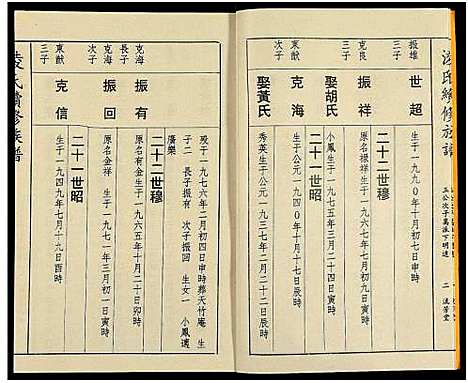 凌氏續修族譜
五公次子萬派下明遠
二
流芳堂
振雄
長子
世超
生于一九九〇年十月十一日寅時
克良
三子
振祥
原名振祥生于一九七九年七月初九日子時
娶胡氏
小鳳生于一九七五年三月二十日
二十二世穆
克海
生于公元一九四〇年十月十七日辰時
娶黃氏
秀英生于公元一九三七年二月二十二日辰時
東猷
三子
克信
生于一九四九年七月十九日酉時
二十一世昭
克海
次子
振回
原名金祥
生于一九七一年三月初一日寅時
克海
長子
振有
原名有金生于一九六五年十月二十日卯時
二十二世穆
廣樂
子二
長子振有
次子振回
生女一
小鳳適
歿于一九七六年二月初四日申時葬天竹庵
生
凌氏續修族譜